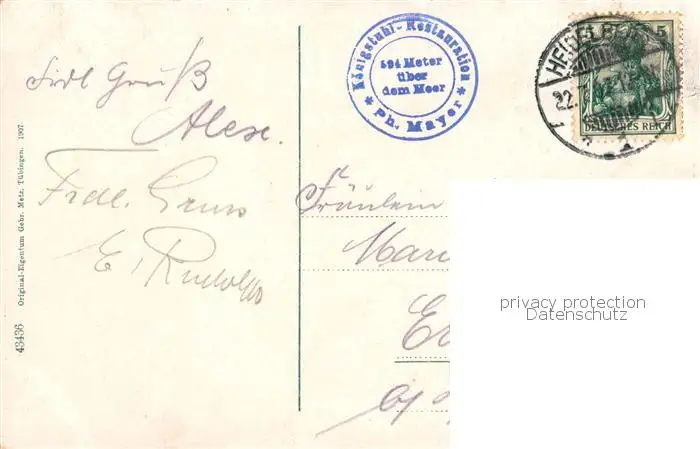 Frdl Gruß
Alex.
Frdl. Gruss
E. Rudolph
43436 Original-Eigentum Gebr. Metz, Tübingen. 1907.
Königstuhl-Restauration
594 Meter
über
dem Meer
* Ph. Mayer *
HEIDELB
22.
1
5
DEUTSCHES REICH
Fräulein
Mari
privacy protection
Datenschutz